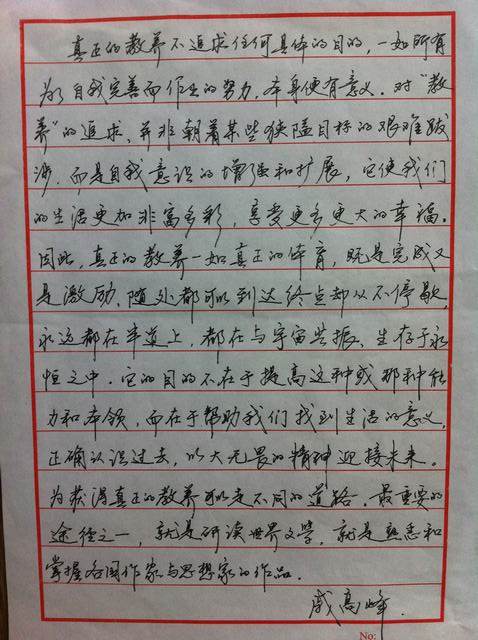 真正的教养不追求任何具体的目的，一如所有
为了自我完善而作出的努力，本身便有意义。对“教
养”的追求，并非朝着某些狭隘目标的艰难跋
涉，而是自我意识的增强和扩展，它使我们
的生活更加丰富多彩，享受更多更大的幸福。
因此，真正的教养一如真正的体育，既是完成又
是激励，随处都可以到达终点却从不停歇，
永远都在半道上，都在与宇宙共振，生存于永
恒之中。它的目的不在于提高这种或那种能
力和本领，而在于帮助我们找到生活的意义，
正确认识过去，以大无畏的精神迎接未来。
为获得真正的教养可以走不同的道路。最重要的
途径之一，就是研读世界文學，就是熟悉和
掌握各国作家与思想家的作品。
戚高峰.
No: